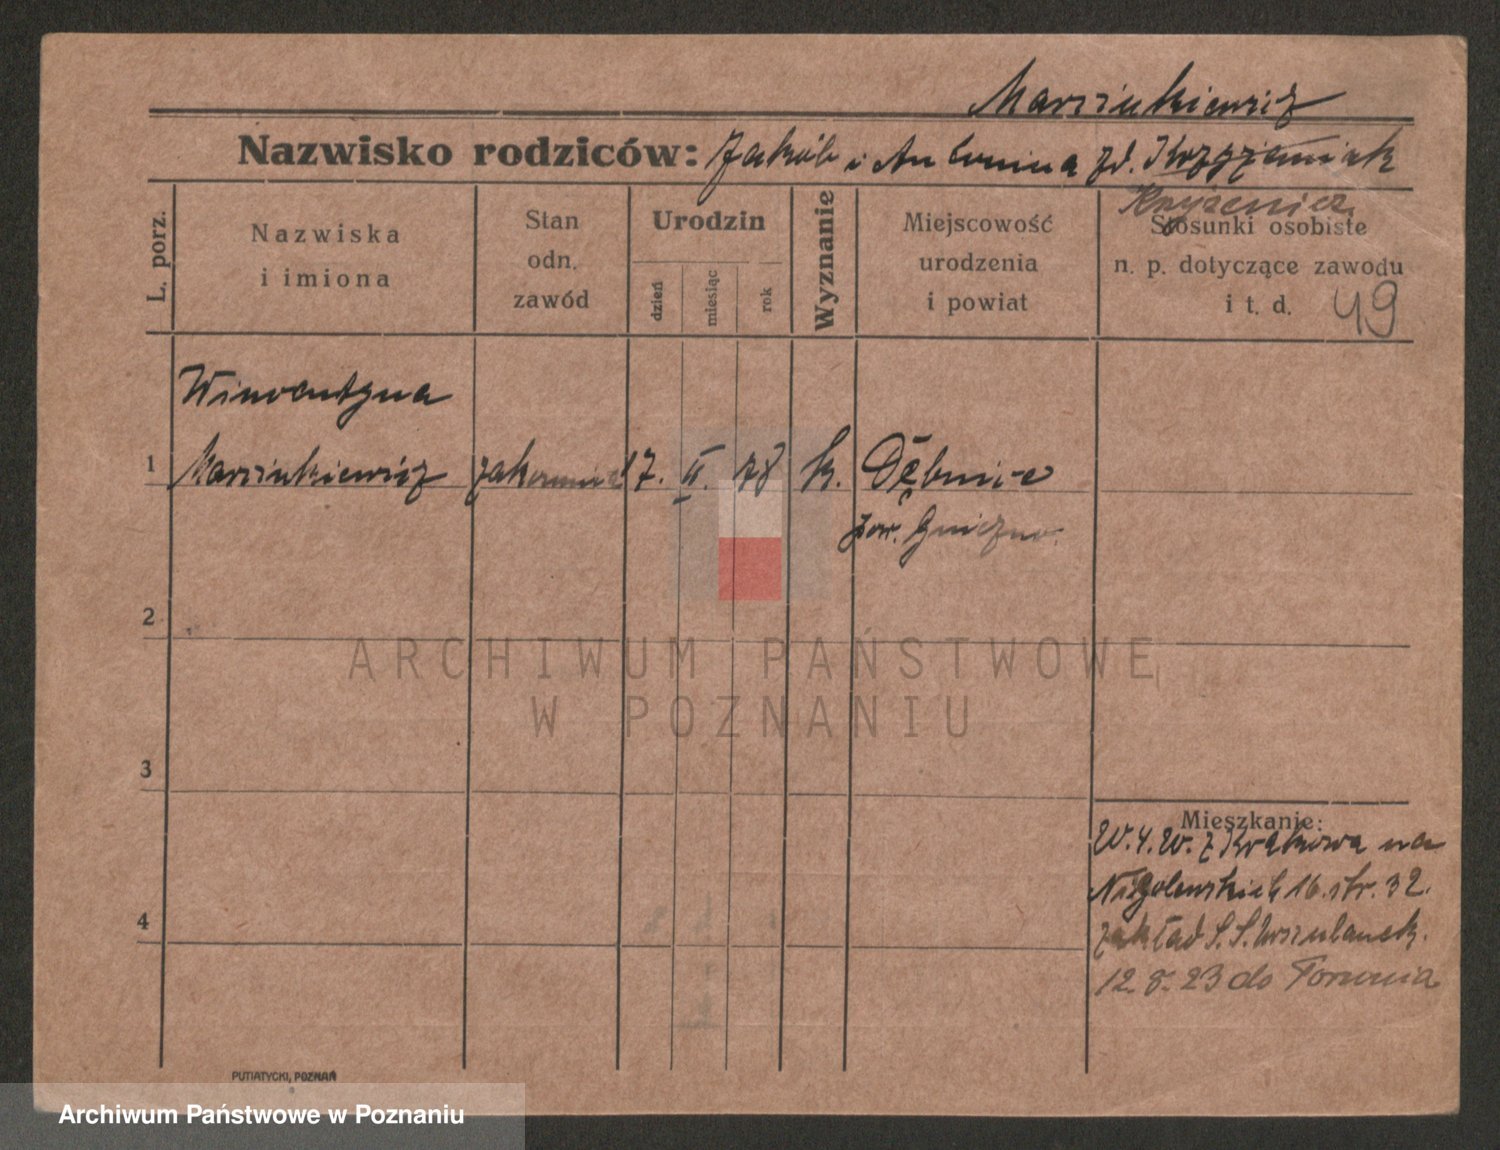 Marszukiewicz
Nazwisko rodziców: Jakób i Antonina zd. Krzyżaniak
Krzyżenicz
L. porz.
Nazwiska
i imiona
Stan
odn.
zawód
Urodzin
dzień
miesiąc
rok
Wyznanie
Miejscowość
urodzenia
i powiat
Stosunki osobiste
n. p. dotyczące zawodu
i t. d. 49
Wincentyna
1 Marszukiewicz zakonnica 17. II. 78 k. Dębnice
pow. Gniezno.
2
ARCHIWUM PAŃSTWOWE
W POZNANIU
3
Mieszkanie:
z Krakowa na
16. str. 32.
4
zakład S. S. Urszulanek.
12. 8. 23 do Torunia
PUTIATYCKI, POZNAŃ
Archiwum Państwowe w Poznaniu